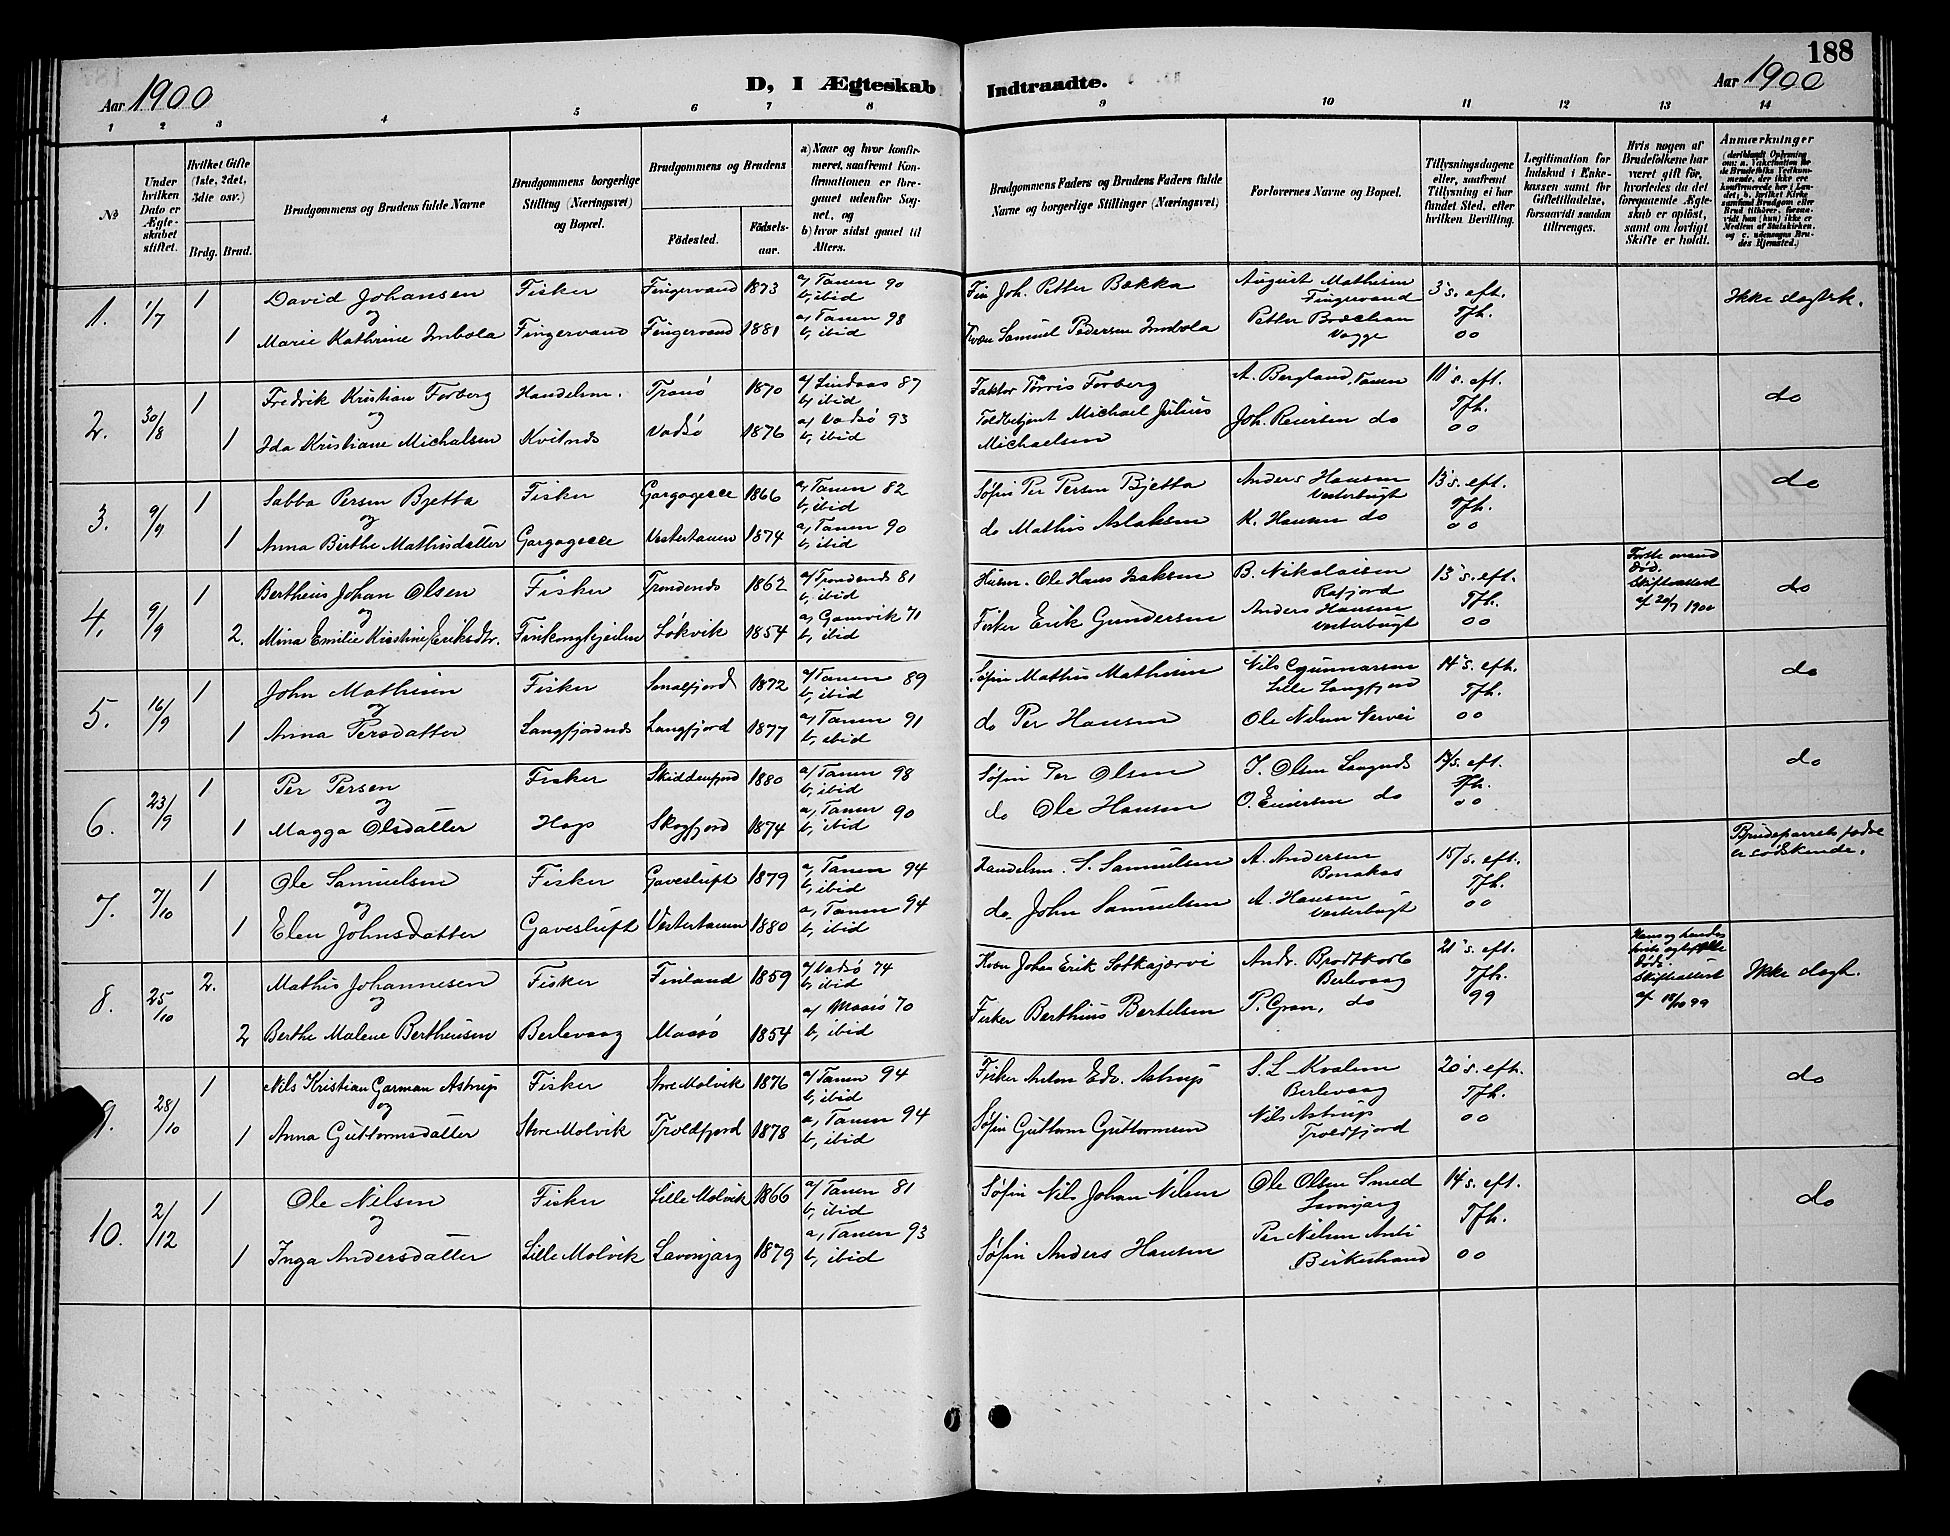 188
Aar 1900
D, I Ægteskab Indtraadte.
Aar 1900
1 2 3 4 5 6 7 8 9 10 11 12 13 14
No
Under hvilken Dato er Ægteskabet stiftet.
Hvilket Gifte (1ste, 2det, 3die osv.)
Brdg. Brud.
Brudgommens og Brudens fulde Navne
Brudgommens borgerlige Stilling (Næringsvei) og Bopæl.
Brudgommens og Brudens
Fødested.
Fødselsaar.
a) Naar og hvor konfirmeret, saafremt Konfirmationen er foregaaet udenfor Sognet, og
b) hvor sidst gaaet til Alters.
Brudgommens Faders og Brudens Faders fulde Navne og borgerlige Stillinger (Næringsvei)
Forlovernes Navne og Bopæl.
Tillysningsdagene eller, saafremt Tillysning ei har fundet Sted, efter hvilken Bevilling.
Legitimation for Indskud i Enkekassen samt for Giftetilladelse, forsaavidt saadan tiltrænges.
Hvis nogen af Brudefolkene har været gift før, hvorledes da det foregaaende Ægteskab er opløst, samt om lovligt Skifte er holdt.
Anmærkninger
1. 1/7 1 David Johansen Fisker Fingervand 1873 a/ Tanen 90 b, ibid Fin Joh. Petter Bakka August Mathisen Fingervand 3 s. eft. Tfh. 00 Ikke slegtsk.
og
1 Marie Kathrine Imbola Fingervand Fingervand 1881 a/ Tanen 98 b, ibid Kvæn Samuel Pedersen Imbola Petter Brækan Vagge
2. 30/8 1 Fredrik Kristian Forberg Handelsm. Tranö 1870 a/ Lindaas 87 b, ibid Faktor Tørris Forberg A. Bergland, Tanen 11 s. eft. Tfh. 00 do
og
1 Ida Kristiane Michalsen Kvitnes Vadsö 1876 a/ Vadsö 93 b, ibid Toldbetjent Michael Julius Michaelsen Joh. Reiersen do
3. 9/9 1 Sabba Persen Bjetta Fisker Gargogecce 1866 a, Tanen 82 b, ibid Søfin Per Persen Bjetta Anders Hansen Vesterbugt 13 s. eft. Tfh. 00 do
og
1 Anna Birthe Mathisdatter Gargogecce Vestertanen 1874 a, Tanen 90 b, ibid do Mathis Aslaksen K. Hansen do
4. 9/9 1 Bertheus Johan Olsen Fisker Trondenes 1862 a/ Trondenes 81 b, ibid Husm. Ole Hans Isaksen B. Nikolaisen Rafjord 13 s. eft. Tfh. 00 Første mand død. Skifteattest af 20/7 1900 do
og
2. Mina Emilie Kirstine Eriksdtr. Finkongkjeilen Løkvik 1854 a, Gamvik 71 b, ibid Fisker Erik Gundersen Anders Hansen Vesterbugt
5. 16/9 1 John Mathisen Fisker Smalfjord 1872 a/ Tanen 89 b, ibid Søfin Mathis Mathisen Nils Gunnarsen Lille Langfjord 14 s. eft. Tfh. 00 do
og
1 Anna Persdatter Langfjordnes Langfjord 1877 a/ Tanen 91 b, ibid do Per Hansen Ole Nilsen Vervei
6. 23/9 1 Per Persen Fisker Skiddenfjord 1880 a/ Tanen 98 b, ibid Søfin Per Olsen J. Olsen Langnes 17/s. eft. Tfh. 00 do
og
1 Magga Olsdatter Hops Skogfjord 1874 a, Tanen 90 b, ibid do Ole Hansen O. Einersen do
7. 7/10 1 Ole Samuelsen Fisker Gavesluft 1879 a, Tanen 94 b, ibid Handelsm. S. Samuelsen A. Andersen Bonakas 15/s. eft. Tfh. 00 Brudeparrets fædre er södskende.
og
1 Elen Johnsdatter Gavesluft Vestertanen 1880 a, Tanen 94 b, ibid do. John Samuelsen A. Hansen Vesterbugt
8. 25/10 2. Mathis Johannesen Fisker Finland 1859 a/ Vadsö 74 b, ibid Kvæn Johan Erik Sotkajærvi Andr. Brodtkorb Berlevaag 21 s. eft. Tfh. 99 Hans og hendes første ægtefelle døde. Skifteattest af 18/10 99 Ikke slegt.
og
2 Berthe Malene Bertheusen Berlevaag Maasö 1854 a/ Maasö 70 b, ibid Fisker Berthius Bertelsen P. Gran, do
9. 28/10 1 Nils Kristian Garman Astrup Fisker Store Molvik 1876 a/ Tanen 94 b, ibid Fisker Anton Edv. Astrup S. L. Kvalen Berlevaag 20 s. eft. Tfh. 00 do
og
1 Anna Guttormsdatter Store Molvik Troldfjord 1878 a, Tanen 94 b, ibid Søfin Guttorm Guttormsen Nils Astrup Troldfjord
10. 2/12 1 Ole Nilsen Fisker Lille Molvik 1866 a/ Tanen 81 b, ibid Søfin Nils Johan Nilsen Ole Olsen Smed Lavonjarg 14 s. eft. Tfh. 00 do
og
1 Inga Andersdatter Lille Molvik Lavonjarg 1879 a, Tanen 93 b, ibid Søfin Anders Hansen Per Nilsen Anti Birkestrand